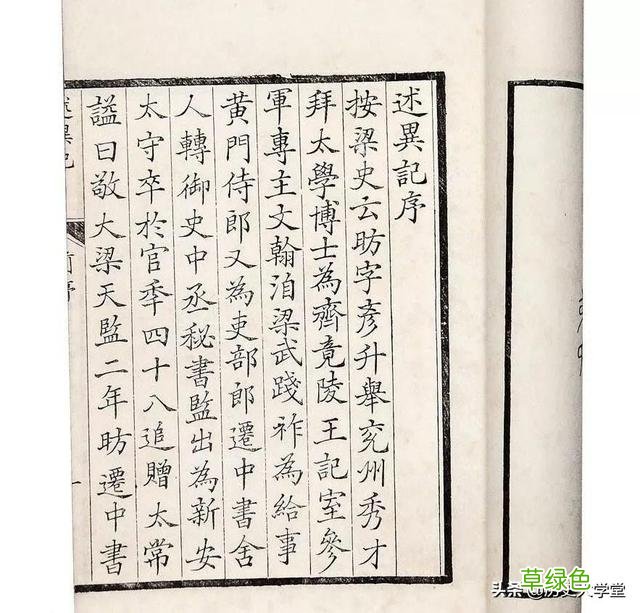 述異記序
按梁史云昉字彥升舉兖州秀才
拜太學博士為齊竟陵王記室參
軍專主文翰洎梁武踐祚為給事
黄門侍郎又為吏部郎遷中書舍
人轉御史中丞秘書監出為新安
太守卒於官年四十八追贈太常
謚曰敬大梁天監二年昉遷中書
述異記
序
一
头条
历史大学堂
草绿色